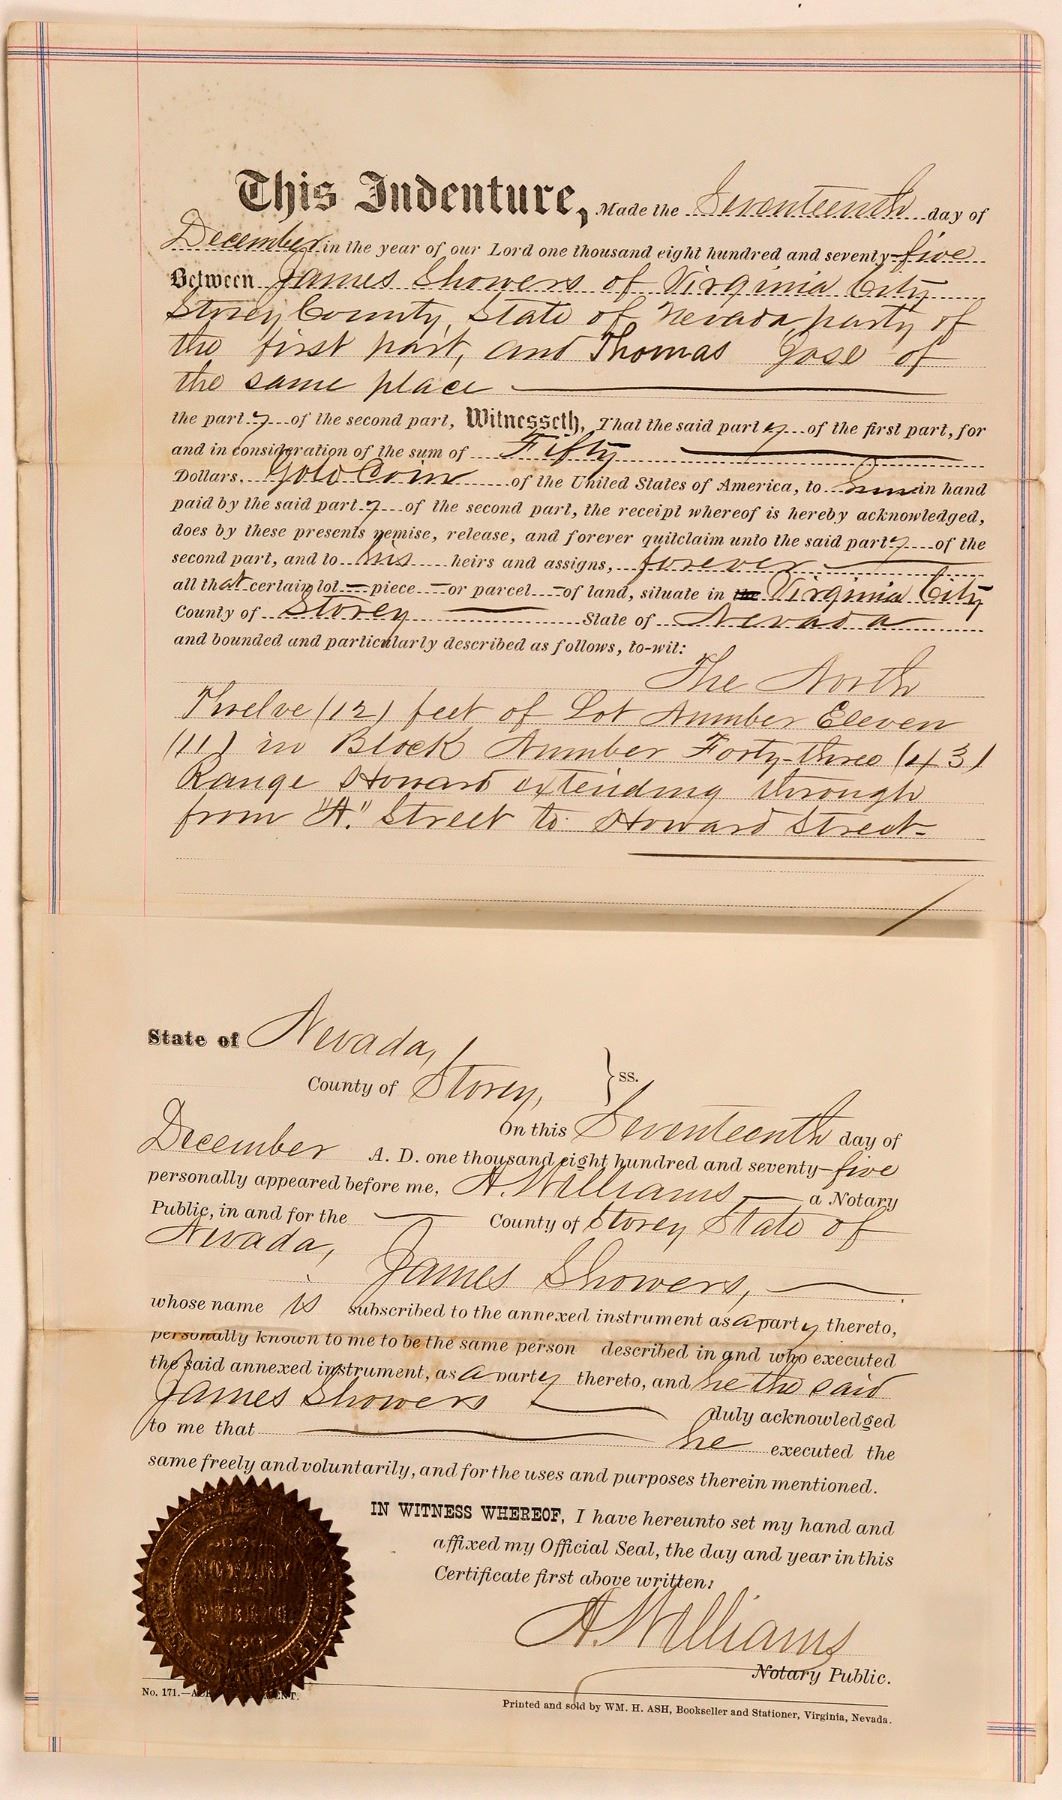 This Indenture, Made the Seventeenth day of
December in the year of our Lord one thousand eight hundred and seventy-five
Between James Showers of Virginia City
Storey County, State of Nevada, party of
the first part, and Thomas Jose of
the same place
the party of the second part, Witnesseth, That the said party of the first part, for
and in consideration of the sum of Fifty
Dollars, Gold Coin of the United States of America, to him in hand
paid by the said party of the second part, the receipt whereof is hereby acknowledged,
does by these presents remise, release, and forever quitclaim unto the said party of the
second part, and to his heirs and assigns, forever
all that certain lot piece or parcel of land, situate in the Virginia City
County of Storey State of Nevada
and bounded and particularly described as follows, to-wit:
The North
Twelve (12) feet of Lot Number Eleven
(11) in Block Number Forty-three (43)
Range Howard extending through
from "A." Street to Howard Street
State of Nevada,
County of Storey, } ss.
On this Seventeenth day of
December A. D. one thousand eight hundred and seventy-five
personally appeared before me, A. Williams a Notary
Public, in and for the County of Storey State of
Nevada,
James Showers,
whose name is subscribed to the annexed instrument as a party thereto,
personally known to me to be the same person described in and who executed
the said annexed instrument, as a party thereto, and he the said
James Showers duly acknowledged
to me that he executed the
same freely and voluntarily, and for the uses and purposes therein mentioned.
IN WITNESS WHEREOF, I have hereunto set my hand and
affixed my Official Seal, the day and year in this
Certificate first above written:
A. Williams
Notary Public.
NOTARY
PUBLIC
No. 171.—
Printed and sold by WM. H. ASH, Bookseller and Stationer, Virginia, Nevada.